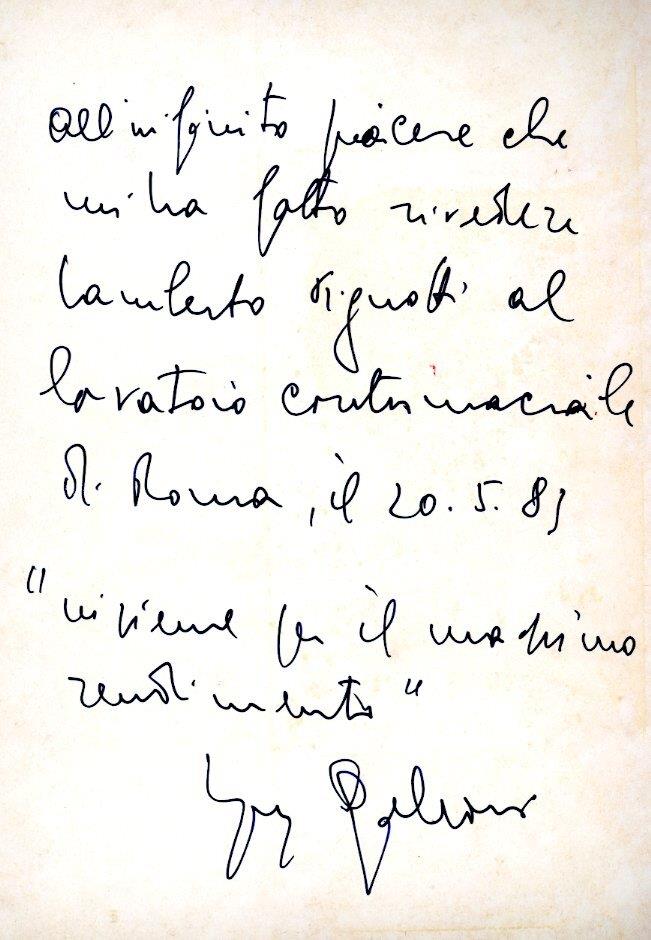 all'infinito piacere che
mi ha fatto rivedere
Lamberto Pignotti al
lavatoio contumaciale
di Roma, il 20.5.83
"insieme per il massimo
rendimento"